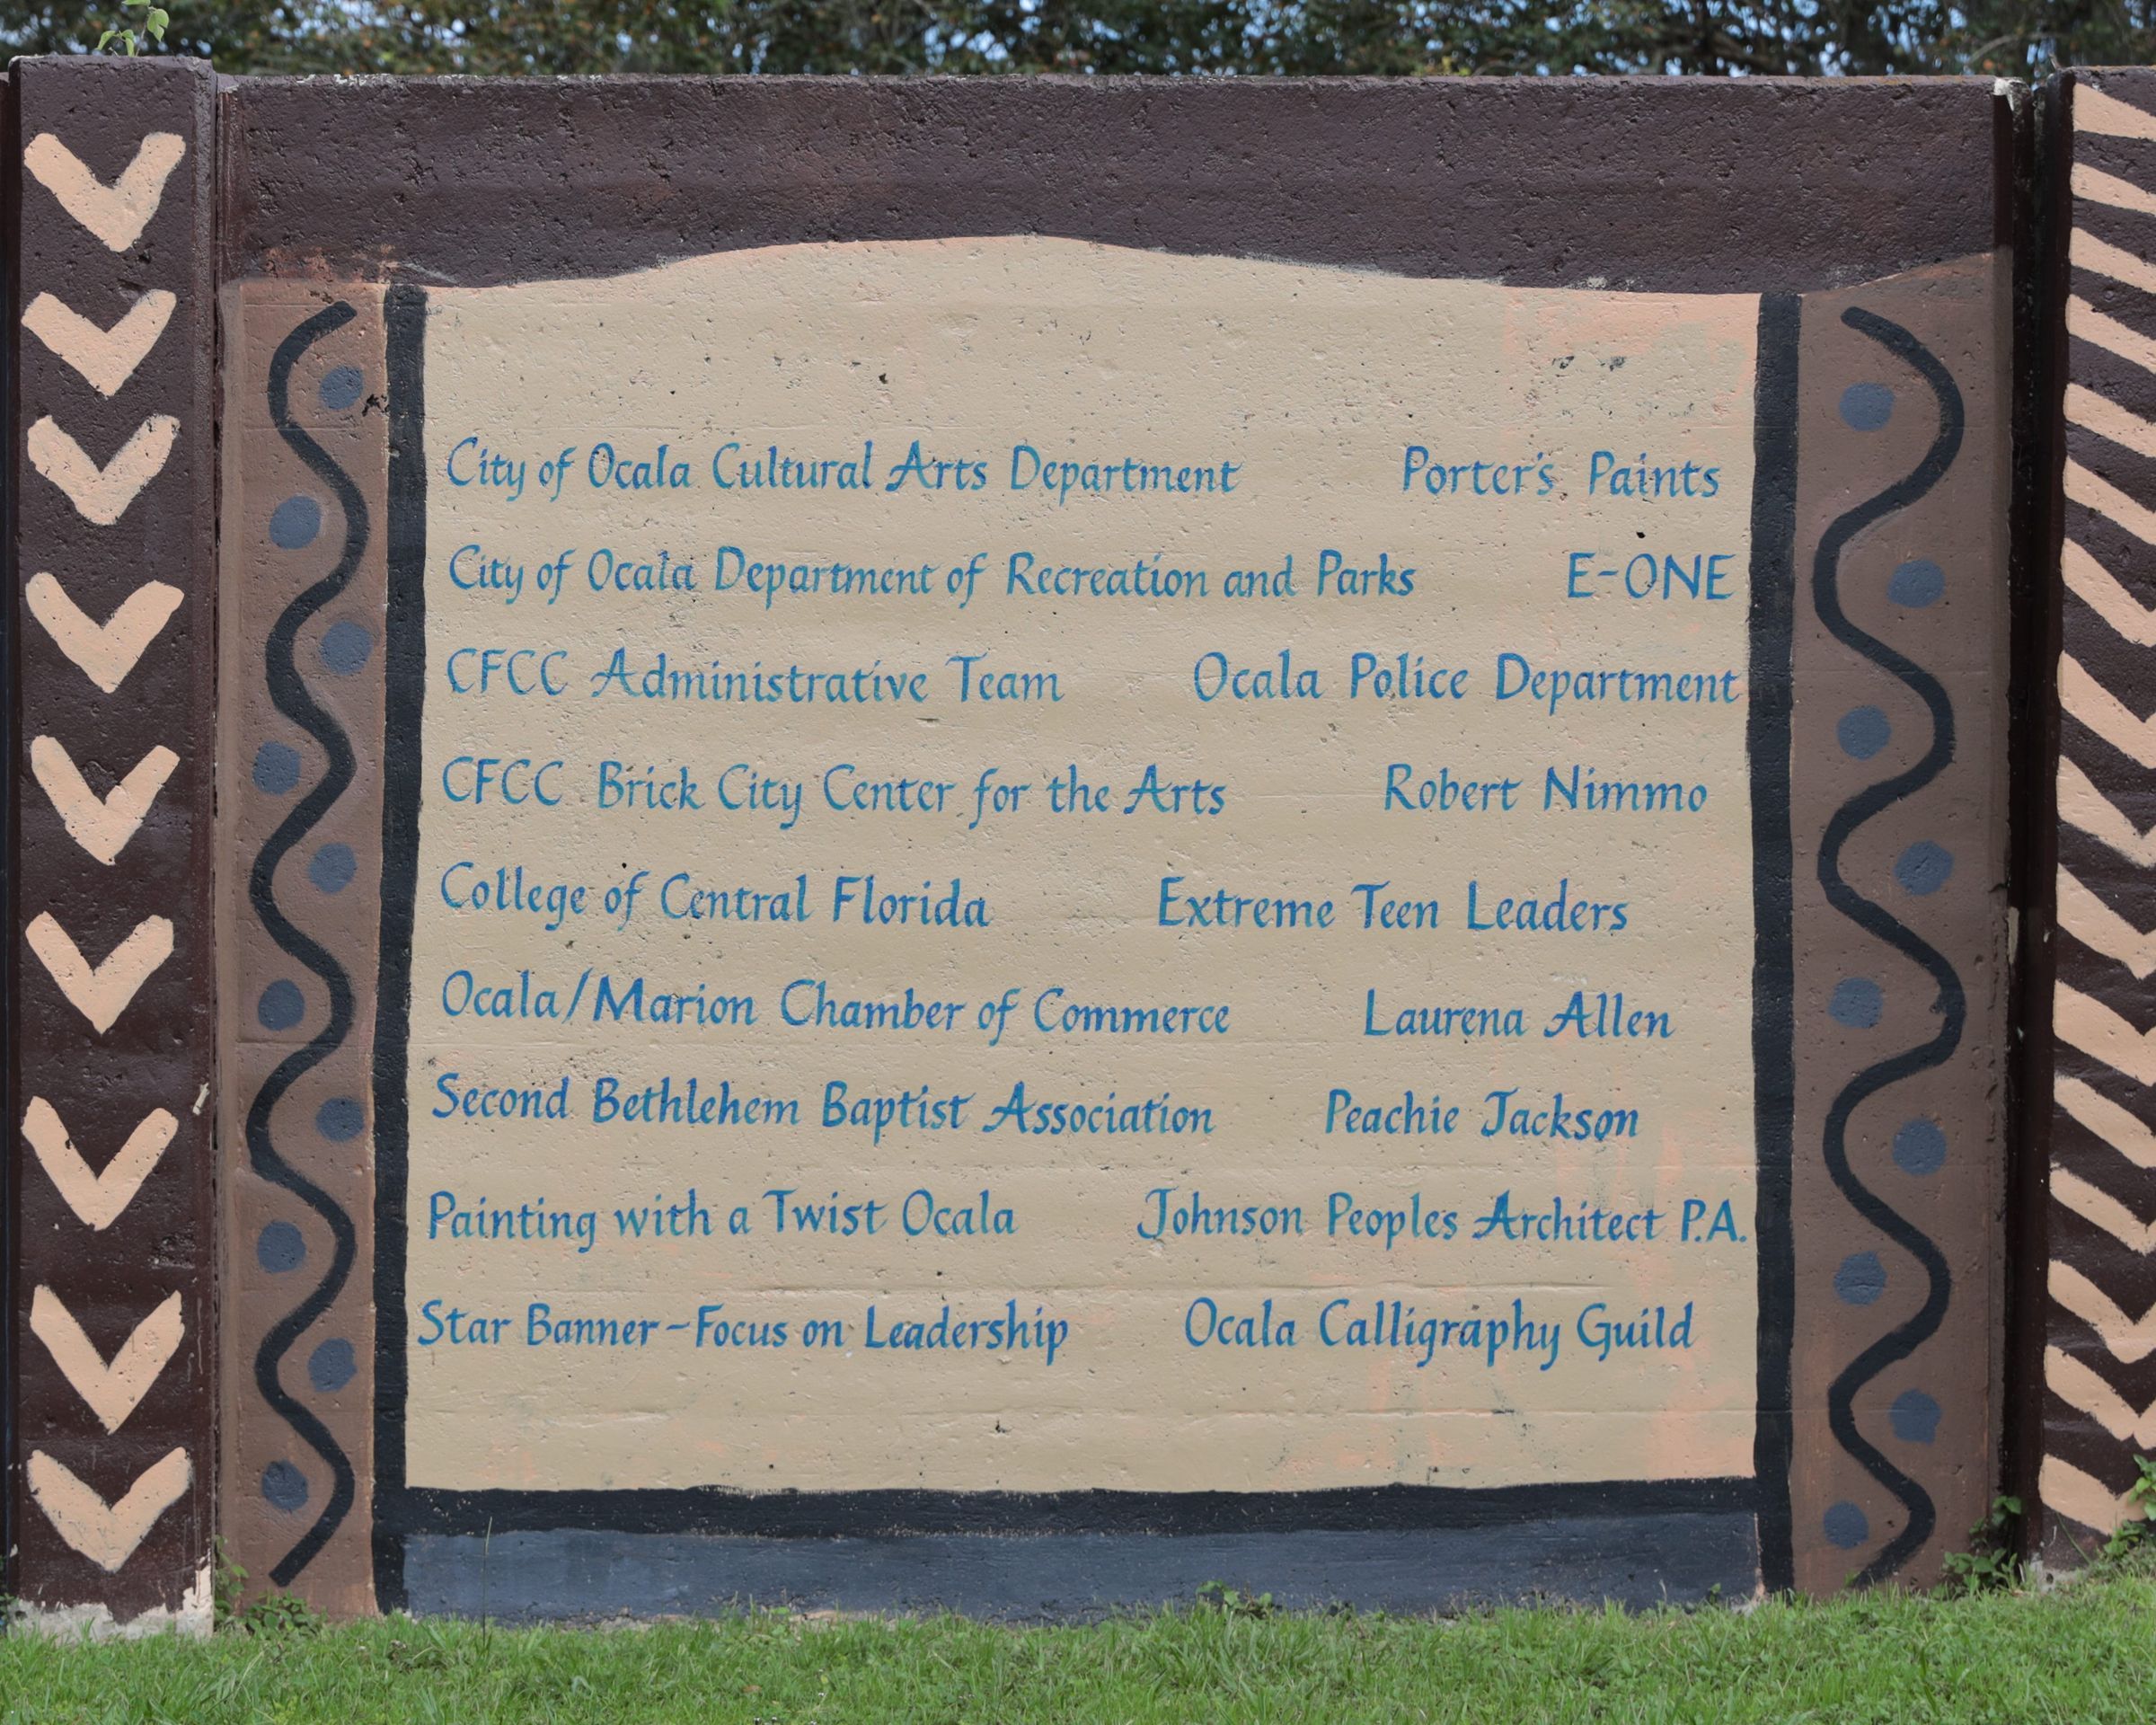 City of Ocala Cultural Arts Department Porter's Paints
City of Ocala Department of Recreation and Parks E-ONE
CFCC Administrative Team Ocala Police Department
CFCC Brick City Center for the Arts Robert Nimmo
College of Central Florida Extreme Teen Leaders
Ocala/Marion Chamber of Commerce Laurena Allen
Second Bethlehem Baptist Association Peachie Jackson
Painting with a Twist Ocala Johnson Peoples Architect P.A.
Star Banner-Focus on Leadership Ocala Calligraphy Guild